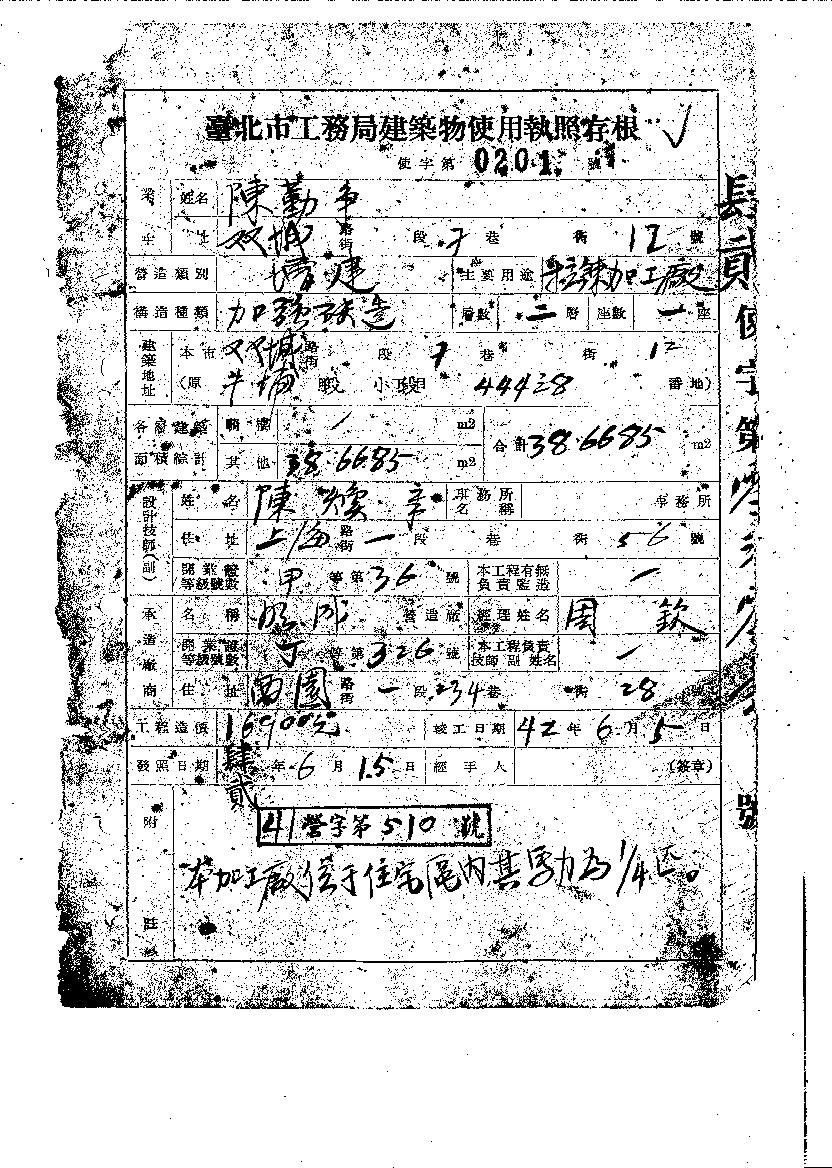 臺北市工務局建築物使用執照存根
使字第0201號
業主 姓名 陳勤
住址 双城路街 段 7巷 街 12號
營造類別 增建 主要用途 拉鍊加工廠
構造種類 加強磚造 層數 二層 座數 一座
建築地址 本市 双城路街 段 7巷 街 12
(原 牛埔 段 小段目 444-28 番地)
各層建築面積綜計 騎樓 / m2 合計 38.6685 m2
其他 38.6685 m2
設計技師(副) 姓名 陳煥 事務所名稱 事務所
住址 上海路街 一段 巷 街 56號
開業證等級號數 甲等第36號 本工程有無負責監造 /
承造廠商 名稱 營造廠 經理姓名 周欽
開業證等級號數 丁等第326號 本工程負責技師副姓名 /
住址 西園路街 一段 234巷 街 28號
工程造價 16900元 竣工日期 42年6月5日
發照日期 肆貳年6月15日 經手人 (簽章)
附註
41營字第510號
本加工廠位于住宅區內其馬力為1/4匹。
肆貳使字第零貳零壹號